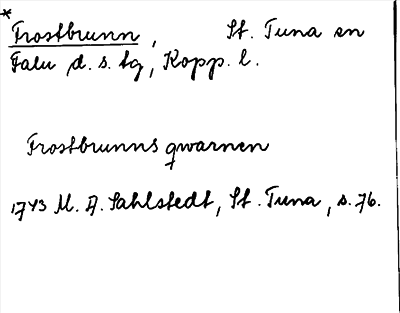 *
Frostbrunn, St. Tuna sn
Falu d. s. tg, Kopp. l.
Frostbrunns qwarnen
1743 M. A. Sahlstedt, St. Tuna, s. 76.